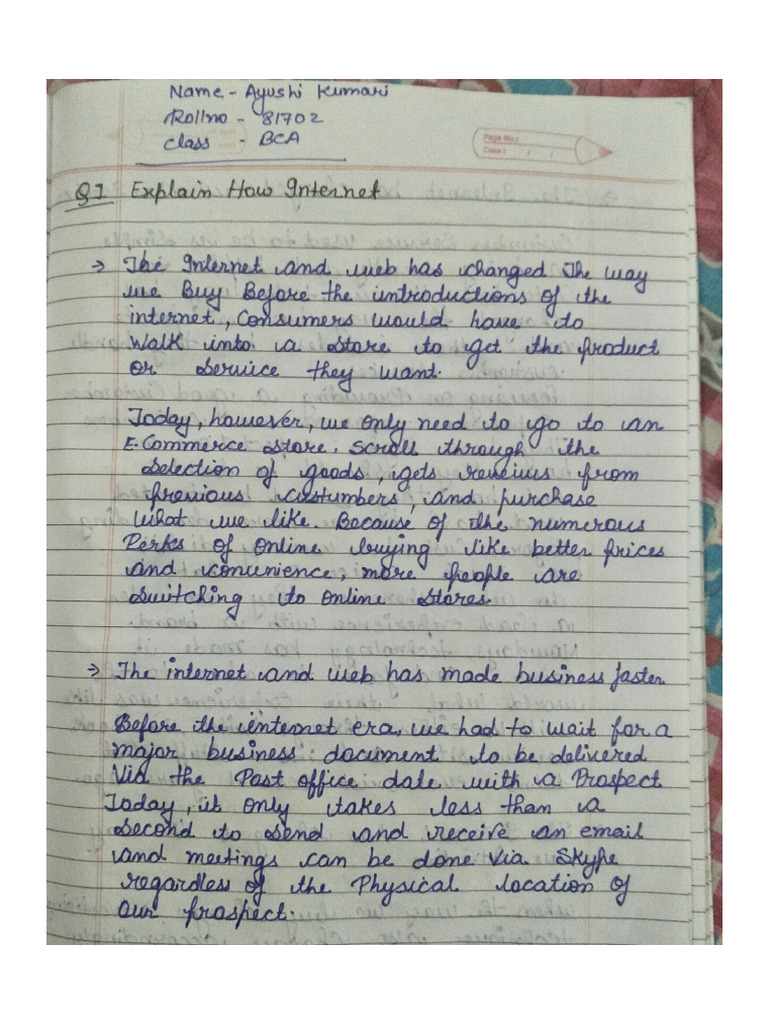 Name - Ayushi Kumari
Rollno - 81702
Class - BCA
Page No.:
Date: / /
Q1 Explain How Internet
→ The Internet and web has changed The way
we Buy Before the introductions of the
internet, Consumers would have to
Walk into a store to get the product
or service they want.
Today, however, we only need to go to an
E-Commerce store. Scroll through the
selection of goods, gets reveius from
previous custumbers, and purchase
What we like. Because of the numerous
Perks of online buying like better prices
and convenience, more people are
switching to online stores.
→ The internet and web has made business faster
Before the internet era, we had to wait for a
major business document to be delivered
Via the Post office date with a Prospect
Today, it only takes less than a
second to send and receive an email
and meetings can be done via Skype
regardless of the Physical location of
our prospect.